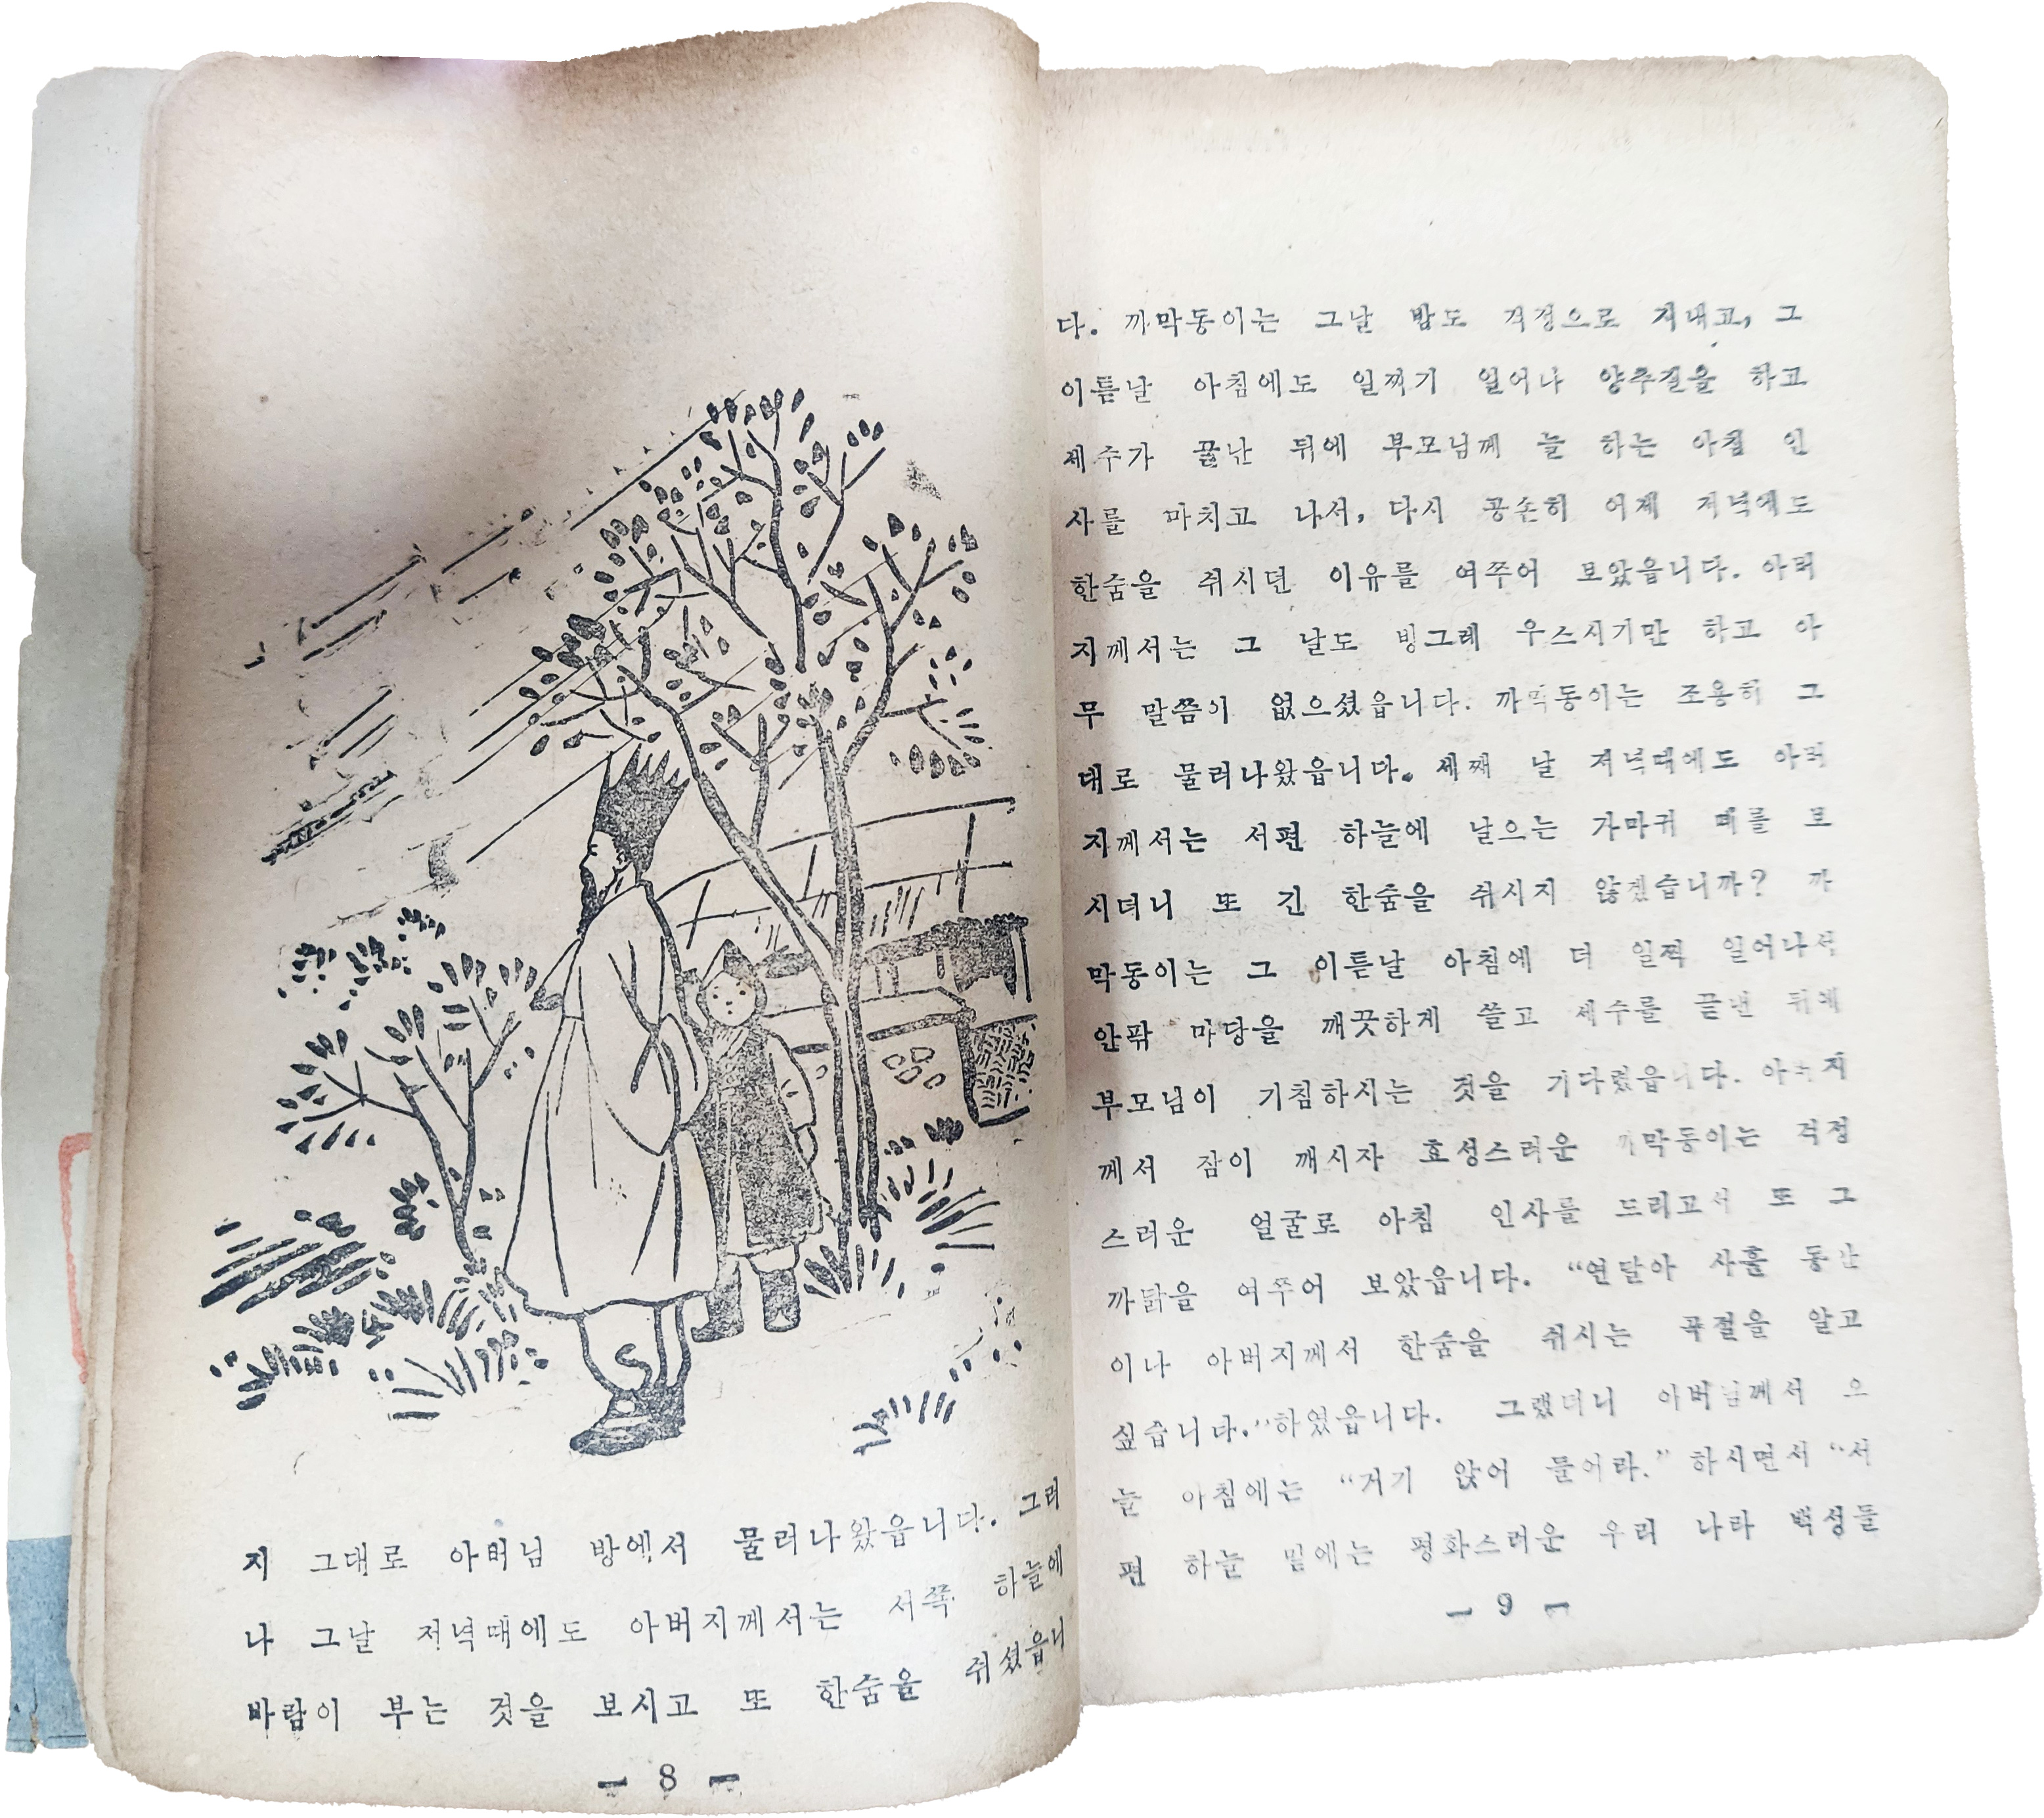 지 그대로 아버님 방에서 물러나왔읍니다. 그러
나 그날 저녁때에도 아버지께서는 서쪽 하늘에
바람이 부는 것을 보시고 또 한숨을 쉬셨읍니
— 8 —
다. 까막동이는 그날 밤도 걱정으로 지내고, 그
이튿날 아침에도 일찌기 일어나 양추질을 하고
세수가 끝난 뒤에 부모님께 늘 하는 아침 인
사를 마치고 나서, 다시 공손히 어제 저녁에도
한숨을 쉬시던 이유를 여쭈어 보았읍니다. 아버
지께서는 그 날도 빙그레 우스시기만 하고 아
무 말씀이 없으셨읍니다. 까막동이는 조용히 그
대로 물러나왔읍니다. 세째 날 저녁때에도 아버
지께서는 서편 하늘에 날으는 가마귀 떼를 보
시더니 또 긴 한숨을 쉬시지 않겠습니까? 까
막동이는 그 이튿날 아침에 더 일찍 일어나서
안팎 마당을 깨끗하게 쓸고 세수를 끝낸 뒤에
부모님이 기침하시는 것을 기다렸읍니다. 아버지
께서 잠이 깨시자 효성스러운 까막동이는 걱정
스러운 얼굴로 아침 인사를 드리고서 또 그
까닭을 여쭈어 보았읍니다. “연달아 사흘 동안
이나 아버지께서 한숨을 쉬시는 곡절을 알고
싶습니다.”하였읍니다. 그랬더니 아버님께서 오
늘 아침에는 “거기 앉어 들어라.” 하시면서 “서
편 하늘 밑에는 평화스러운 우리 나라 백성들
— 9 —